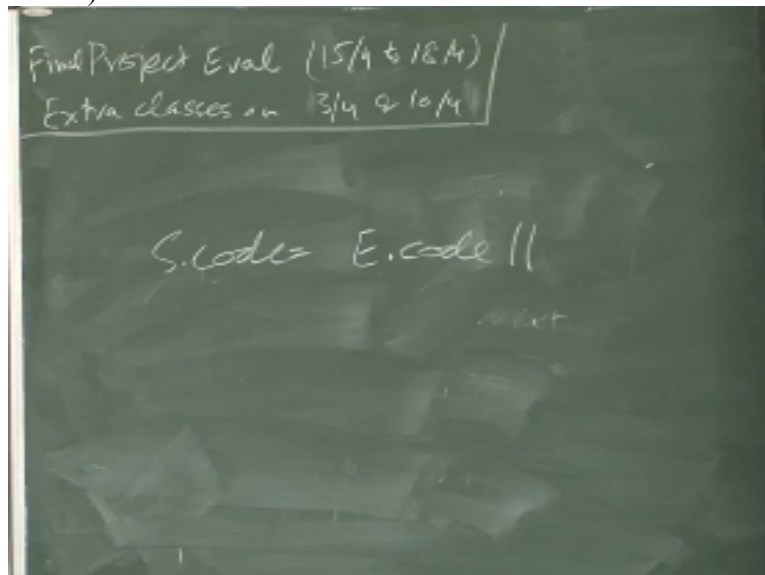 Final Project Eval (15/4 to 18/4)
Extra classes on 3/4 & 10/4
S.code= E.code ||